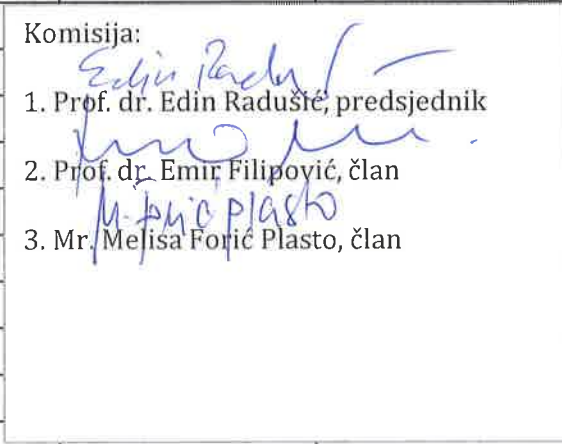 Komisija:
Edin Radu
1. Prof. dr. Edin Radušić, predsjednik
2. Prof. dr. Emir Filipović, član
M. Forić Plasto
3. Mr. Melisa Forić Plasto, član